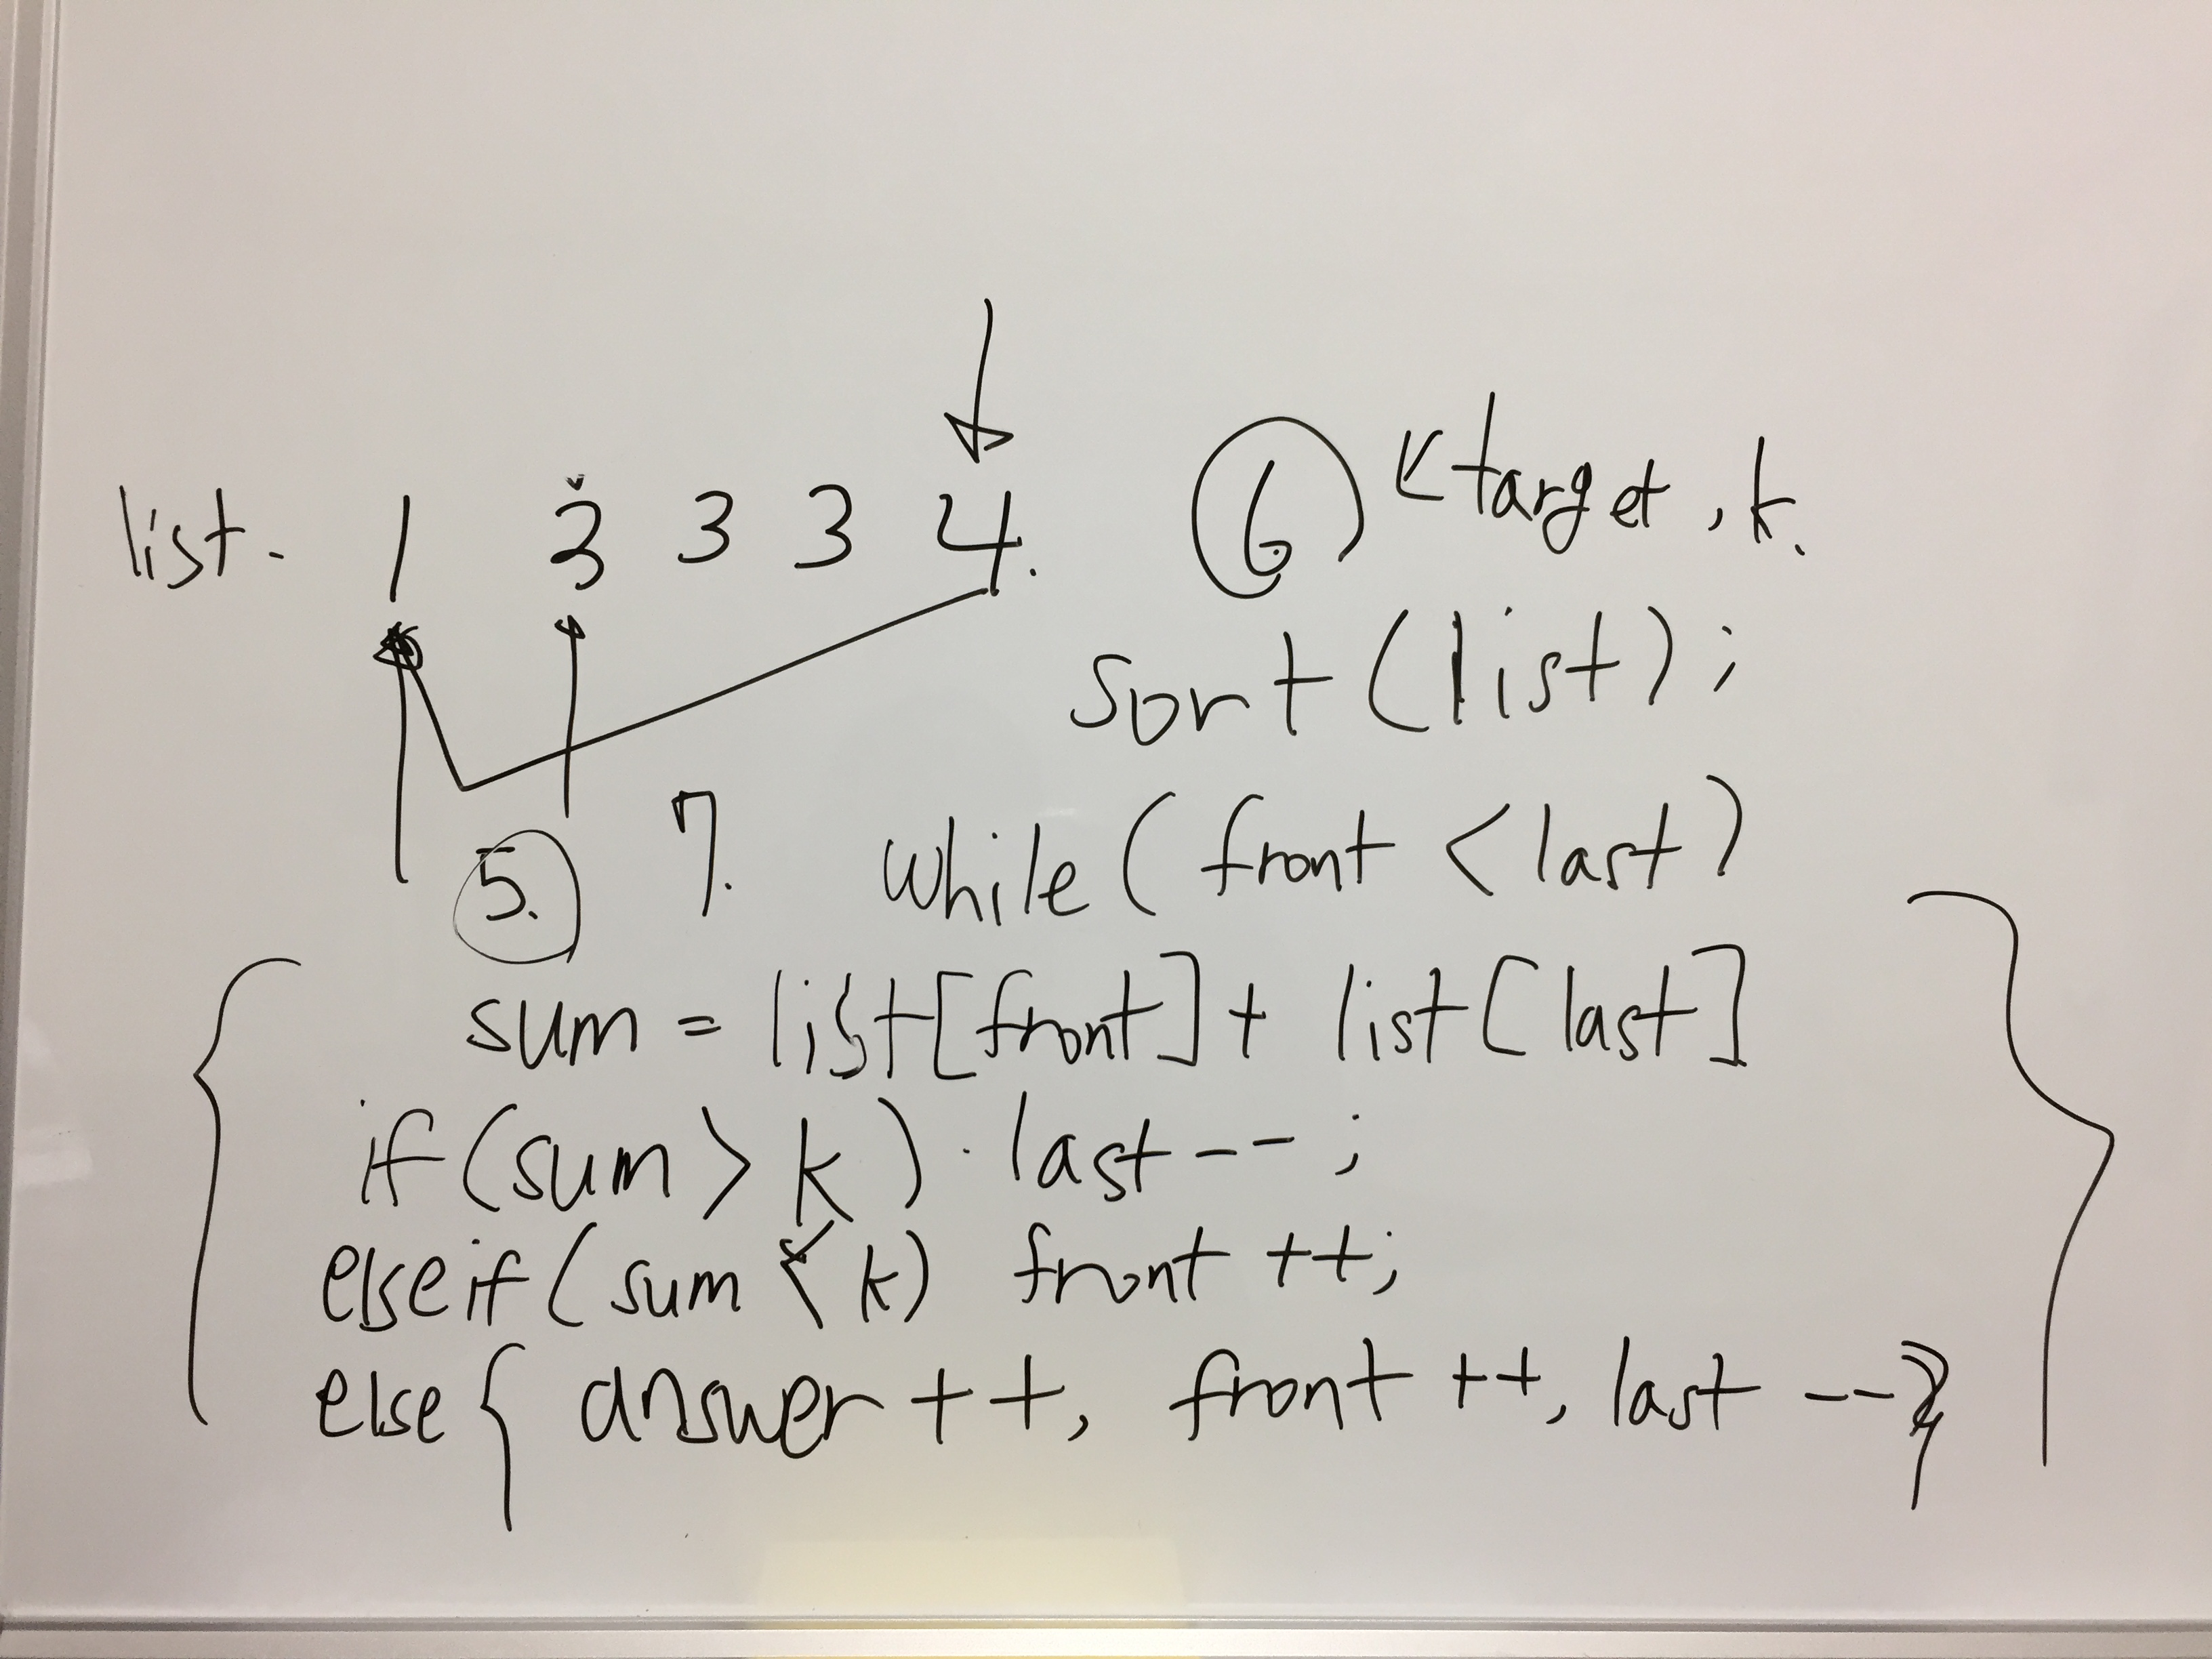 list - 1 3 3 3 4. 6 target, k.
sort (list);
5. 7. while (front < last)
{ sum = list[front] + list[last]
if (sum > k) last--;
else if (sum < k) front ++;
else { answer ++, front ++, last --} }